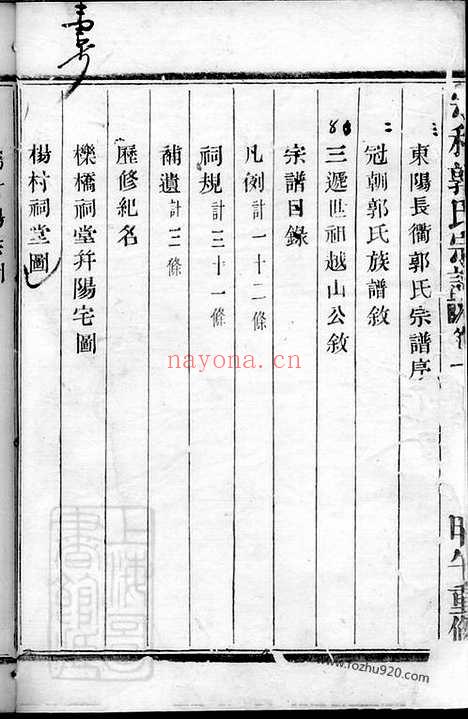 郭氏宗譜
卷一
重修
東陽長衢郭氏宗譜序
冠朝郭氏族譜敘
三遞世祖越山公敘
宗譜目錄
凡例計一十二條
祠規計三十一條
補遺計三條
歷修紀名
櫟橋祠堂并陽宅圖
楊村祠堂圖
80
nayona.cn
www.fozhu920.com